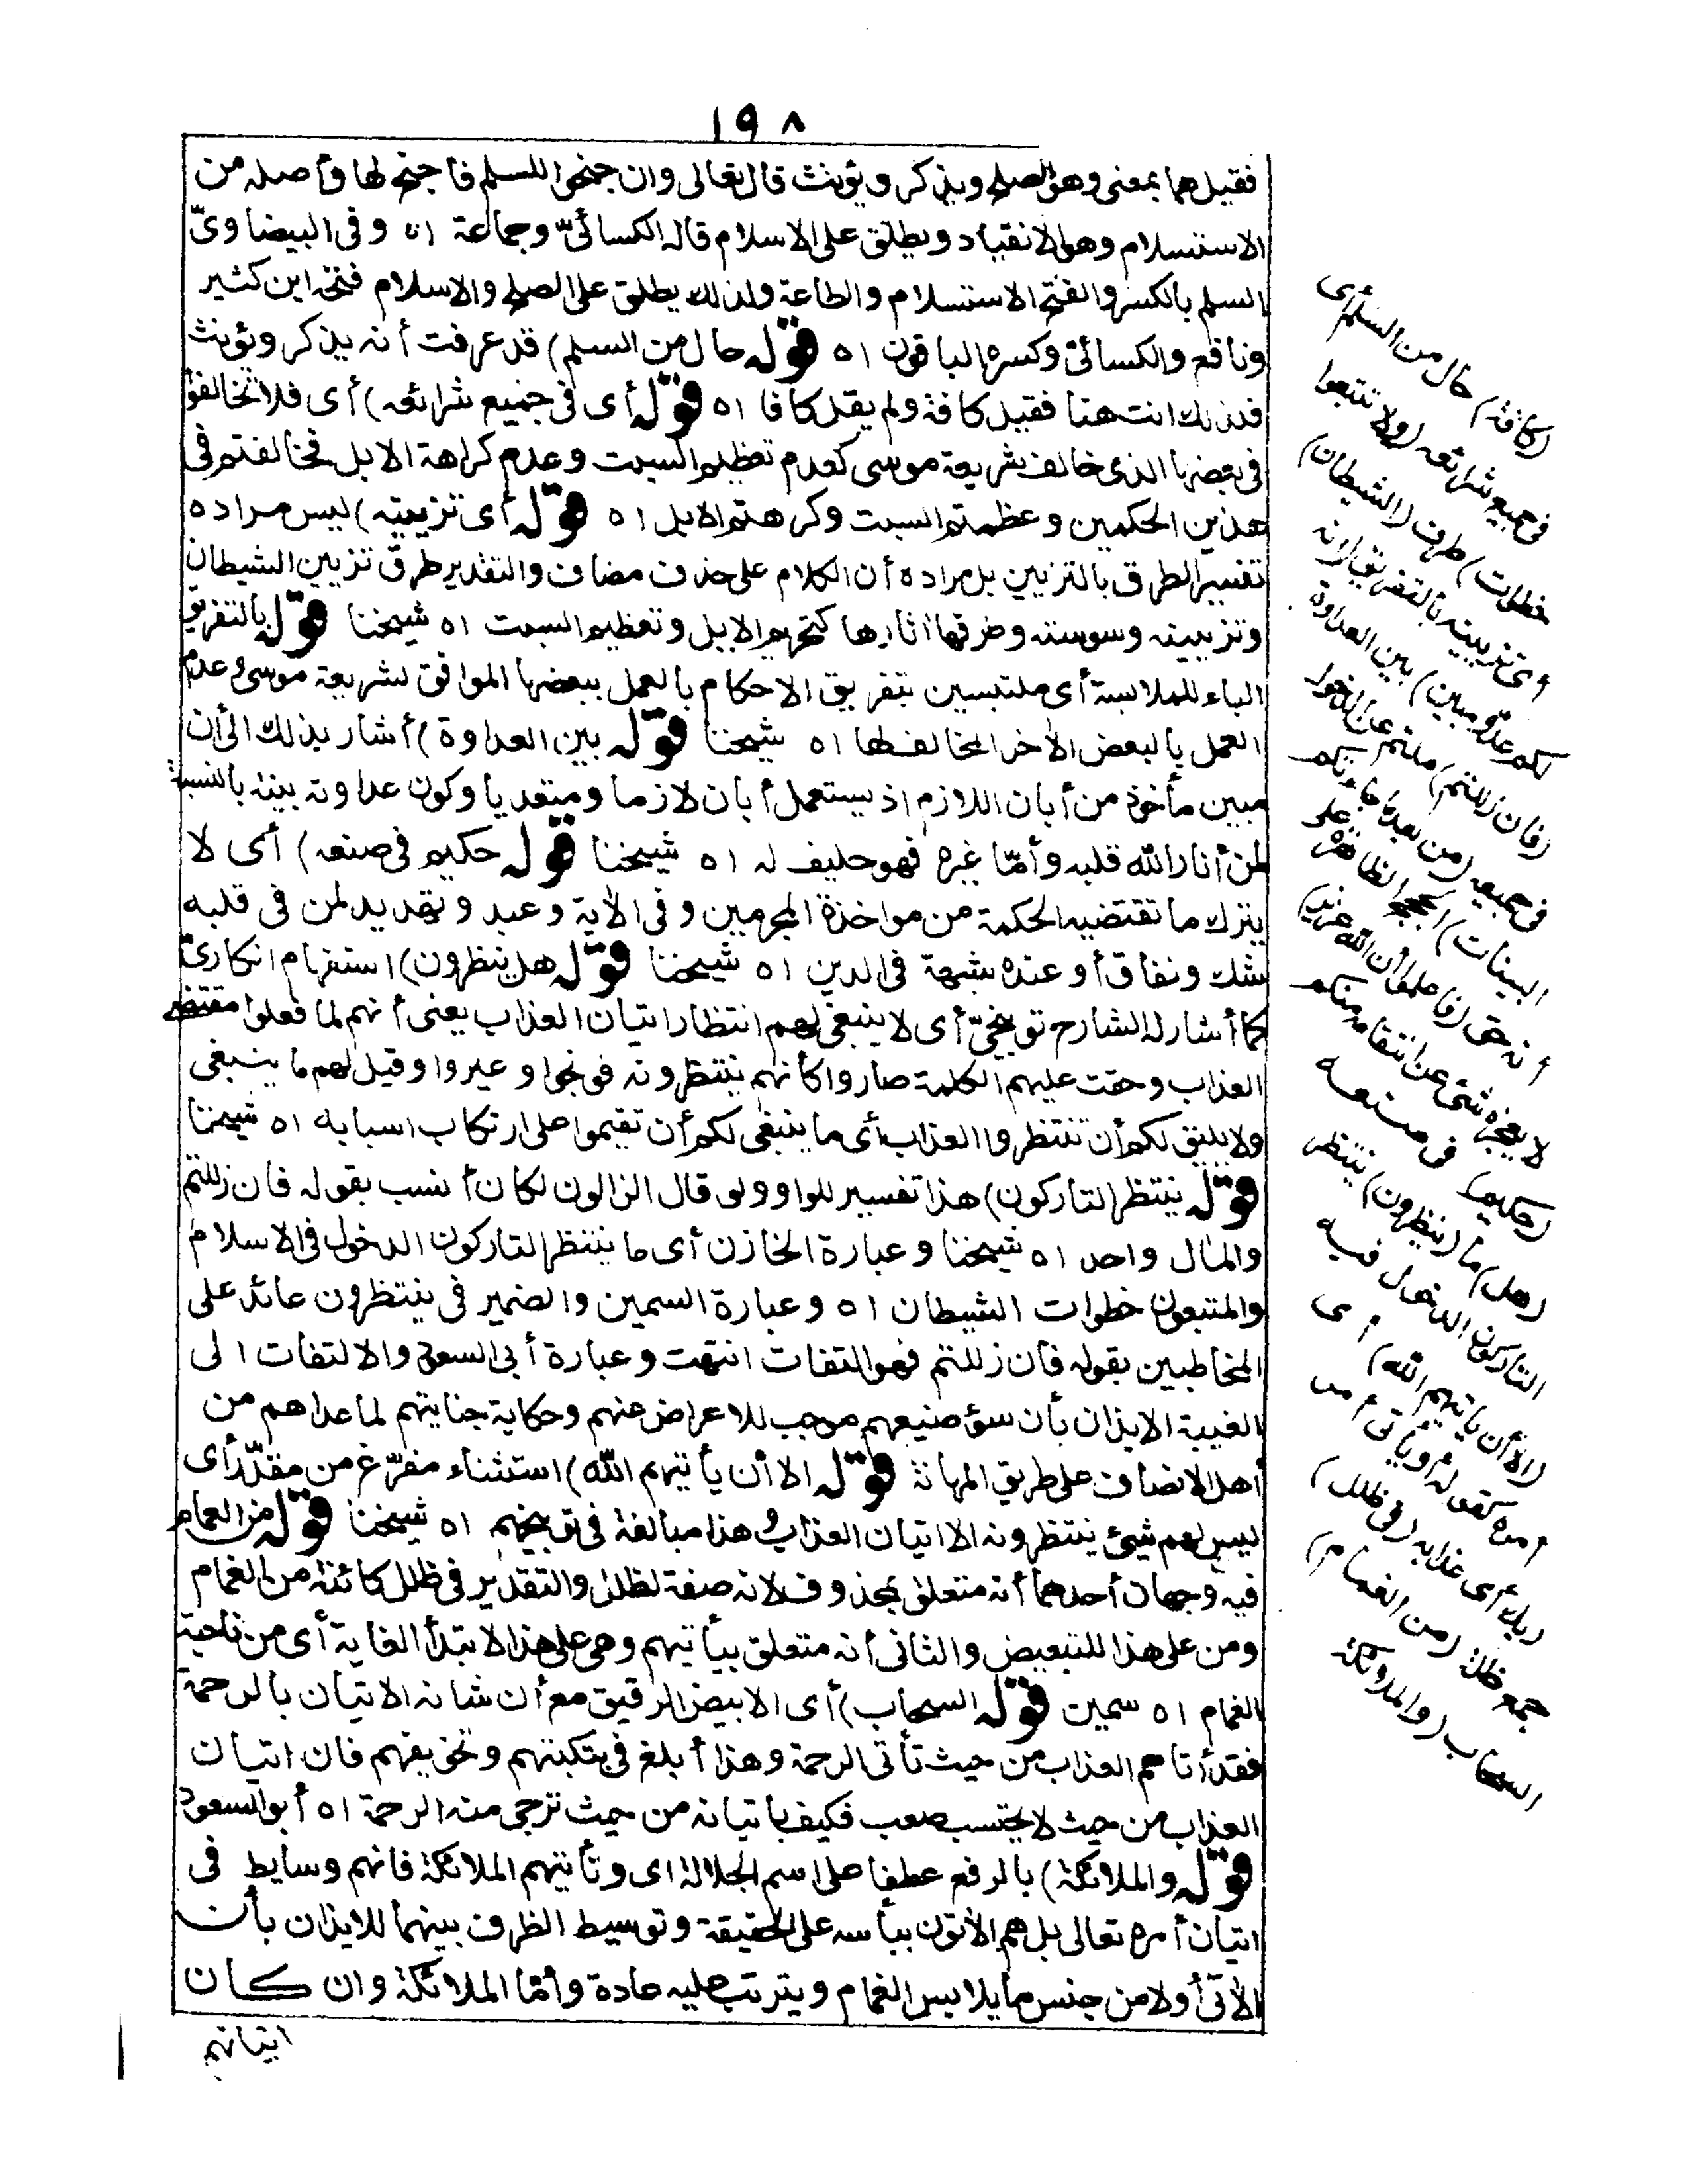 ١٩٨
فقيل هما بمعنى وهو الصلح ويذكر ويؤنث قال تعالى وان جنحوا للسلم فاجنح لها وأصله من
الاستسلام وهو الانقياد ويطلق على الاسلام قاله الكسائىّ وجماعة اه وفى البيضاوىّ
السلم بالكسر والفتح الاستسلام والطاعة ولذلك يطلق على الصلح والاسلام فتحه ابن كثير
ونافع والكسائىّ وكسره الباقون اه قوله حال من السلم) قد عرفت أنه يذكر ويؤنث
فلذلك انث هنا فقيل كافة ولم يقل كافا اه قوله أى فى جميع شرائعه) أى فلا تخالفوا
فى بعضها الذى خالف شريعة موسى كعدم تعظيم السبت وعدم كراهة الابل فخالفتم فى
هذين الحكمين وعظمتم السبت وكرهتم الابل اه قوله أى تزيينه) ليس مراده
تفسير الطرق بالتزيين بل مراده أن الكلام على حذف مضاف والتقدير طرق تزيين الشيطان
وتزيينه وسوسته وطرقها اثارها كتحريم الابل وتعظيم السبت اه شيخنا قوله بالتفريق
الباء للملابسة أى ملتبسين بتفريق الاحكام بالعمل ببعضها الموافق لشريعة موسى وعدم
العمل بالبعض الأخر المخالف لها اه شيخنا قوله بين العداوة) أشار بذلك الى أن
مبين مأخوذ من أبان اللازم اذ يستعمل أبان لازما ومتعديا وكون عداوته بينة بالنسبة
لمن أنار الله قلبه وأمّا غيره فهو حليف له اه شيخنا قوله حكيم فى صنعه) أى لا
يترك ما تقتضيه الحكمة من مواخذة المجرمين وفى الأية وعيد وتهديد لمن فى قلبه
شك ونفاق أو عنده شبهة فى الدين اه شيخنا قوله هل ينظرون) استفهام انكارىّ
كما أشار له الشارح توبيخىّ أى لا ينبغى لهم انتظار اتيان العذاب يعنى أنهم لما فعلوا مقتضى
العذاب وحقت عليهم الكلمة صاروا كأنهم ينتظرونه فوبخوا وعيروا وقيل لهم ما ينبغى
ولا يليق لكم أن تنتظروا العذاب أى ما ينبغى لكم أن تقيموا على ارتكاب اسبابه اه شيخنا
قوله ينتظر التاركون) هذا تفسير للواو ولو قال الزالون لكان أنسب بقوله فان زللتم
والمأل واحد اه شيخنا وعبارة الخازن أى ما ينتظر التاركون الدخول فى الاسلام
والمتبعون خطوات الشيطان اه وعبارة السمين والضمير فى ينتظرون عائد على
المخاطبين بقوله فان زللتم فهو التفات انتهت وعبارة أبى السعود والالتفات الى
الغيبة الايذان بأن سؤ صنيعهم موجب للاعراض عنهم وحكاية جنايتهم لما عداهم من
أهل الانصاف على طريق المهانة قوله الا أن يأتيهم الله) استثناء مفرّغ من مقدّر أى
ليس لهم شيئ ينتظرونه الا اتيان العذاب وهذا مبالغة فى توبيخهم اه شيخنا قوله من الغمام
فيه وجهان أحدهما أنه متعلق بمحذوف لانه صفة لظلل والتقدير فى ظلل كائنة من الغمام
ومن على هذا للتبعيض والثانى أنه متعلق بيأتيهم وهى على هذا لابتدأ الغاية أى من ناحية
الغمام اه سمين قوله السحاب) أى الابيض الرقيق مع أن شانه الاتيان بالرحمة
فقد أتاهم العذاب من حيث تأتى الرحمة وهذا أبلغ فى تبكيتهم وتخويفهم فان اتيان
العذاب من حيث لا يحتسب صعب فكيف باتيانه من حيث ترجى منه الرحمة اه أبو السعود
قوله والملائكة) بالرفع عطفا على اسم الجلالة اى وتأتيهم الملائكة فانهم وسايط فى
اتيان أمره تعالى بل هم الأتون ببأسه على الحقيقة وتوسيط الظرف بينهما للايذان بأن
الأتى أولا من جنس ما يلابس الغمام ويترتب عليه عادة وأمّا الملائكة وان كان
اتيانهم
(كافة) حال من السلم أى
فى جميع شرائعه (ولا تتبعوا
خطوات) طرق (الشيطان)
أى تزيينه بالتفريق (انه
لكم عدوّ مبين) بين العداوة
(فان زللتم) ملتم عن الدخول
فى جميعه (من بعد ما جاءتكم
البينات) الحجج الظاهرة على
أنه حق (فاعلموا أن الله عزيز)
لا يعجزه شئ عن انتقامه منكم
(حكيم) فى صنعه
(هل) ما (ينظرون) ينتظر
التاركون الدخول فيه
(الا أن يأتيهم الله) أى
أمره كقوله أو يأتى أمر
ربك أى عذابه (فى ظلل)
جمع ظلة (من الغمام)
السحاب (والملائكة